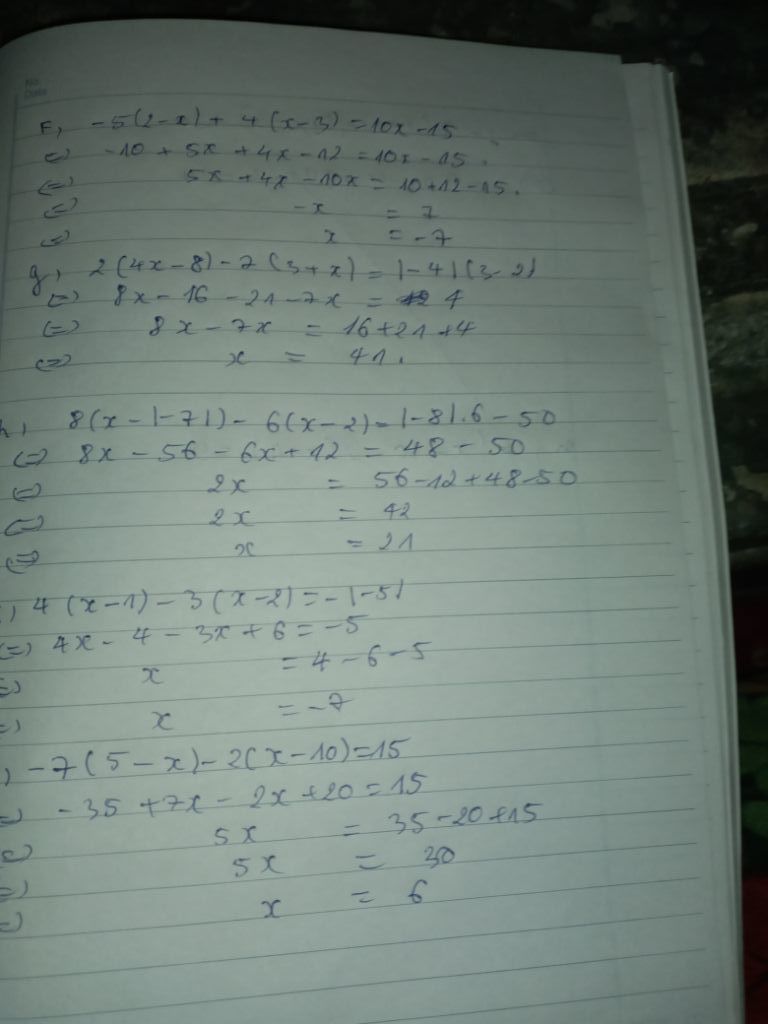 No.
Date
F, -5(2-x) + 4(x-3) = 10x - 15
<=> -10 + 5x + 4x - 12 = 10x - 15.
<=> 5x + 4x - 10x = 10 + 12 - 15.
<=> -x = 7
<=> x = -7
g, 2(4x-8) - 7(3+x) = |-4|(3-2)
<=> 8x - 16 - 21 - 7x = 4
<=> 8x - 7x = 16 + 21 + 4
<=> x = 41.
h, 8(x - |-7|) - 6(x-2) = |-8|.6 - 50
<=> 8x - 56 - 6x + 12 = 48 - 50
<=> 2x = 56 - 12 + 48 - 50
<=> 2x = 42
<=> x = 21
, 4(x-1) - 3(x-2) = -|-5|
<=> 4x - 4 - 3x + 6 = -5
=> x = 4 - 6 - 5
=> x = -7
, -7(5-x) - 2(x-10) = 15
=> -35 + 7x - 2x + 20 = 15
=> 5x = 35 - 20 + 15
=> 5x = 30
=> x = 6